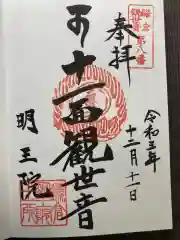 奉拝
令和五年
十二月十一日
十一面観世音
明王院